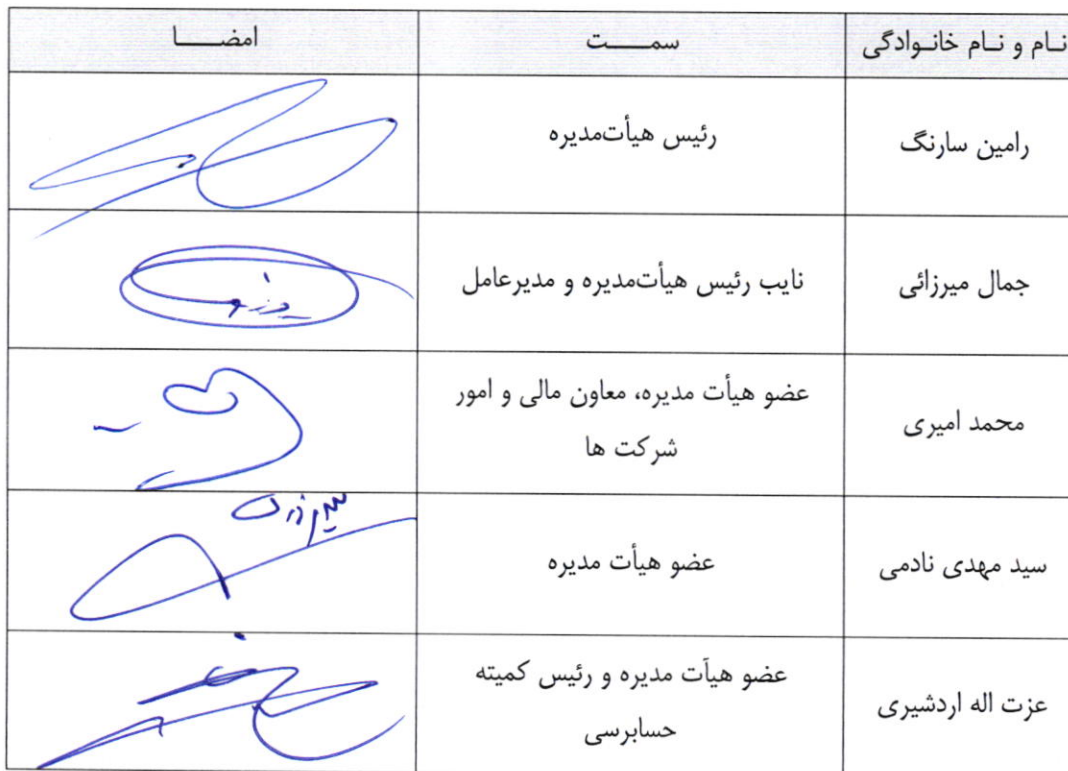 نـام و نـام خانـوادگی سمـــــت امضـــــا
رامین سارنگ رئیس هیأت‌مدیره
جمال میرزائی نایب رئیس هیأت‌مدیره و مدیرعامل
محمد امیری عضو هیأت مدیره، معاون مالی و امور
شرکت ها
سید مهدی نادمی عضو هیأت مدیره
عزت اله اردشیری عضو هیآت مدیره و رئیس کمیته
حسابرسی